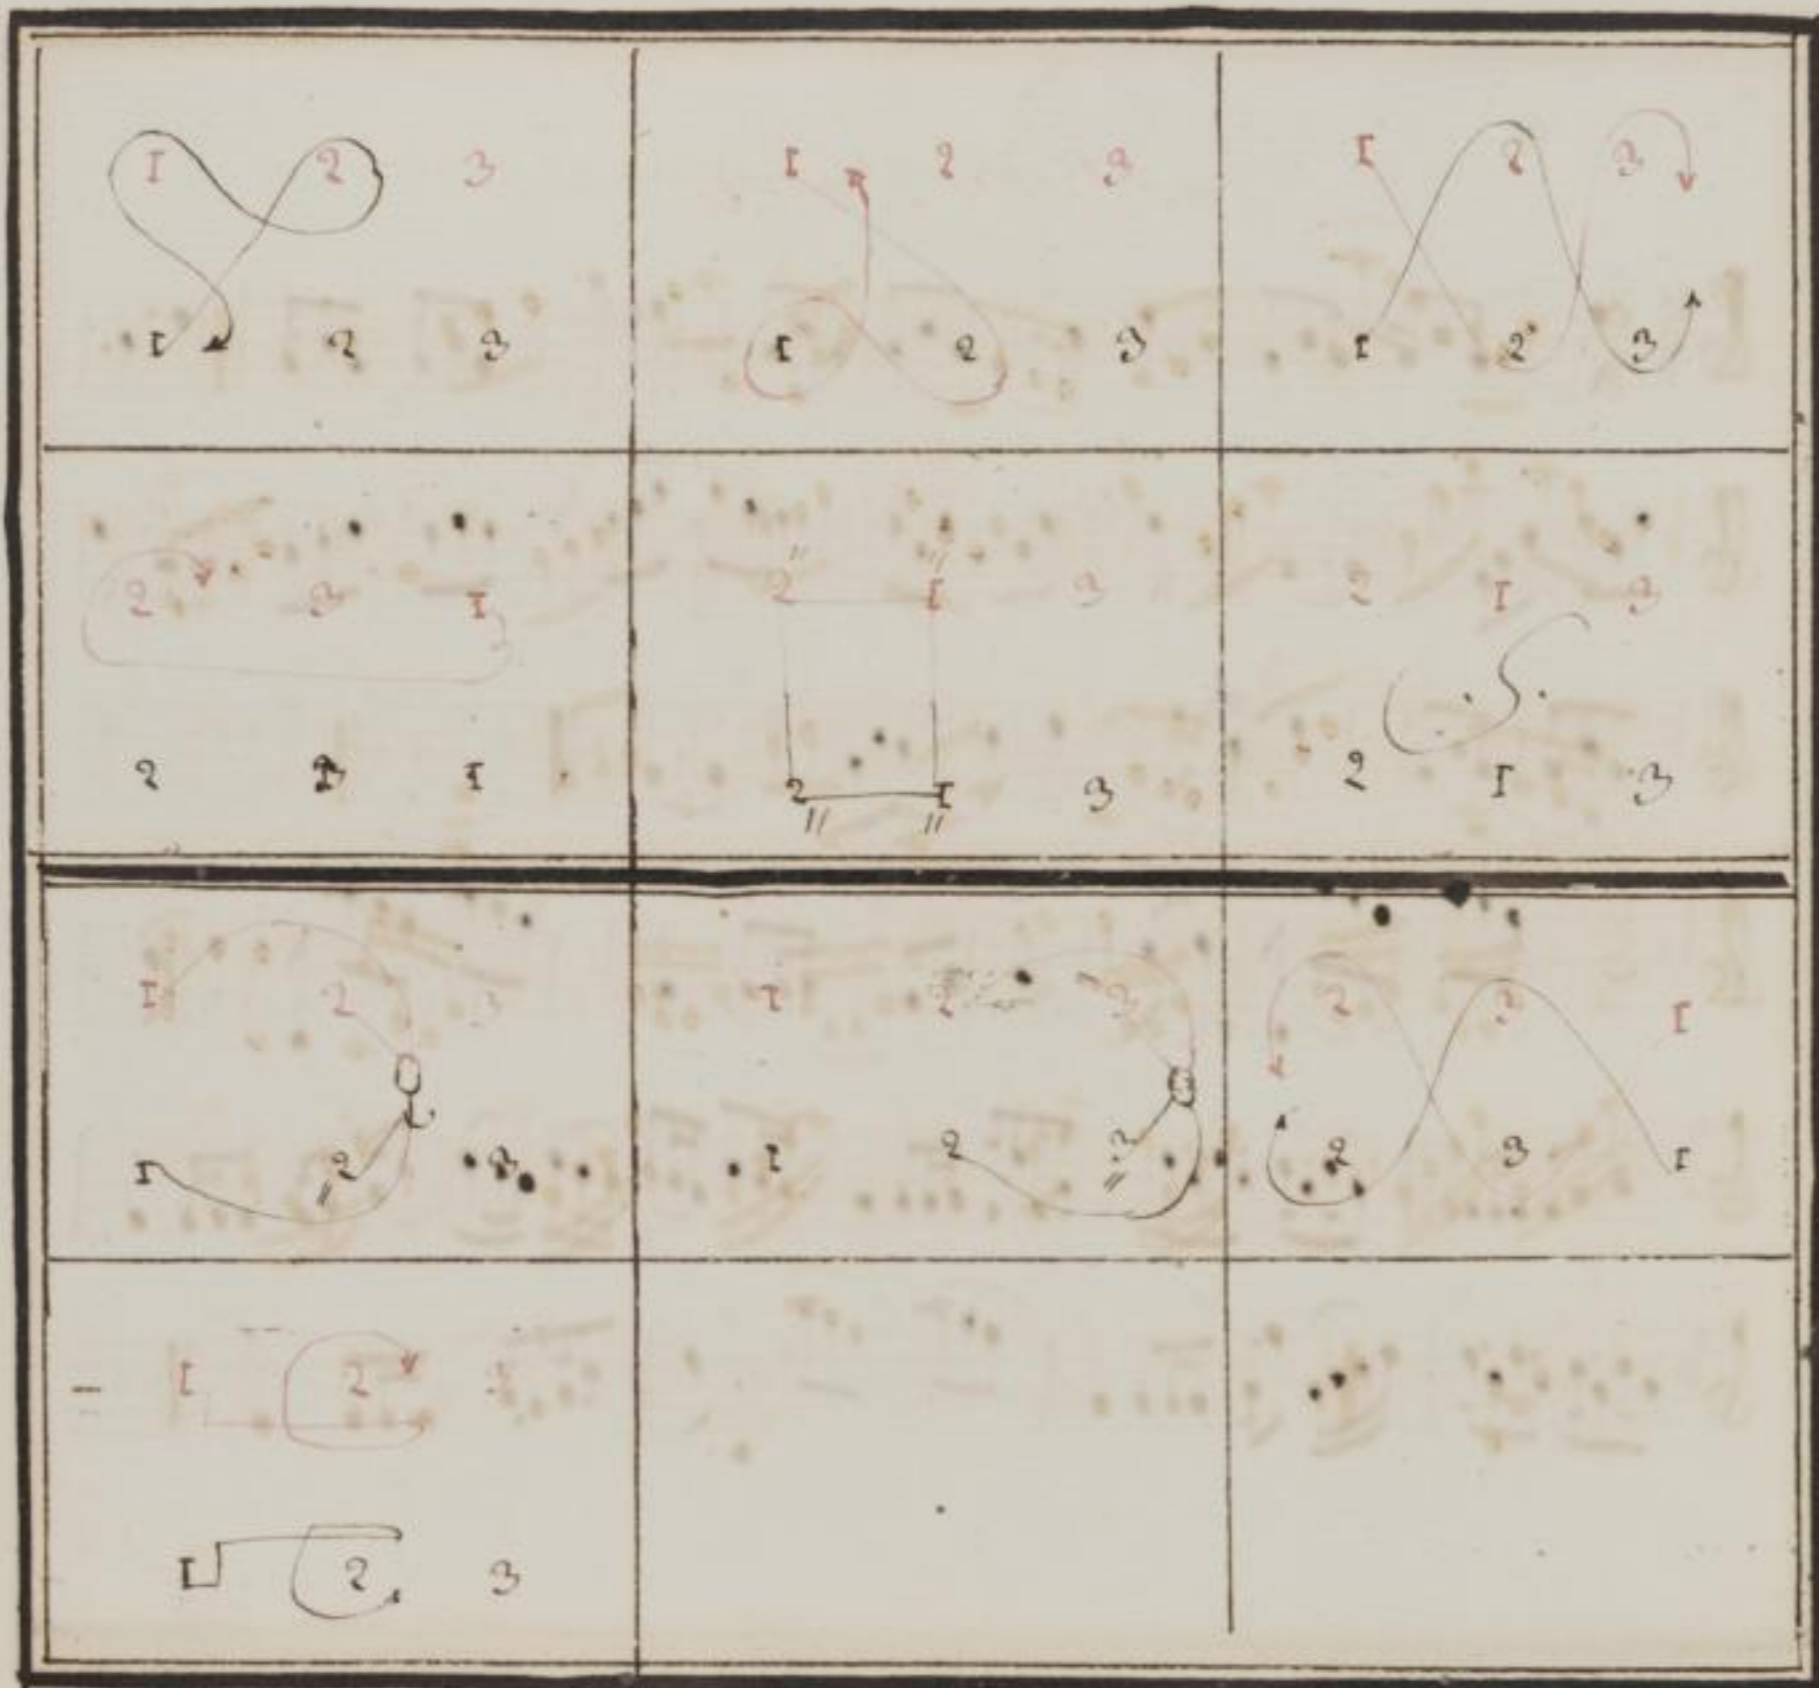 1 2 3
1 2 3
1 2 3
1 2 3
1 2 3
1 2 3
2 3 1
2 3 1
2 1 3
2 1 3
2 1 3
2 1 3
1 2 3
1 2 3
1 2 3
1 2 3
2 3 1
2 3 1
1 2 3
1 2 3